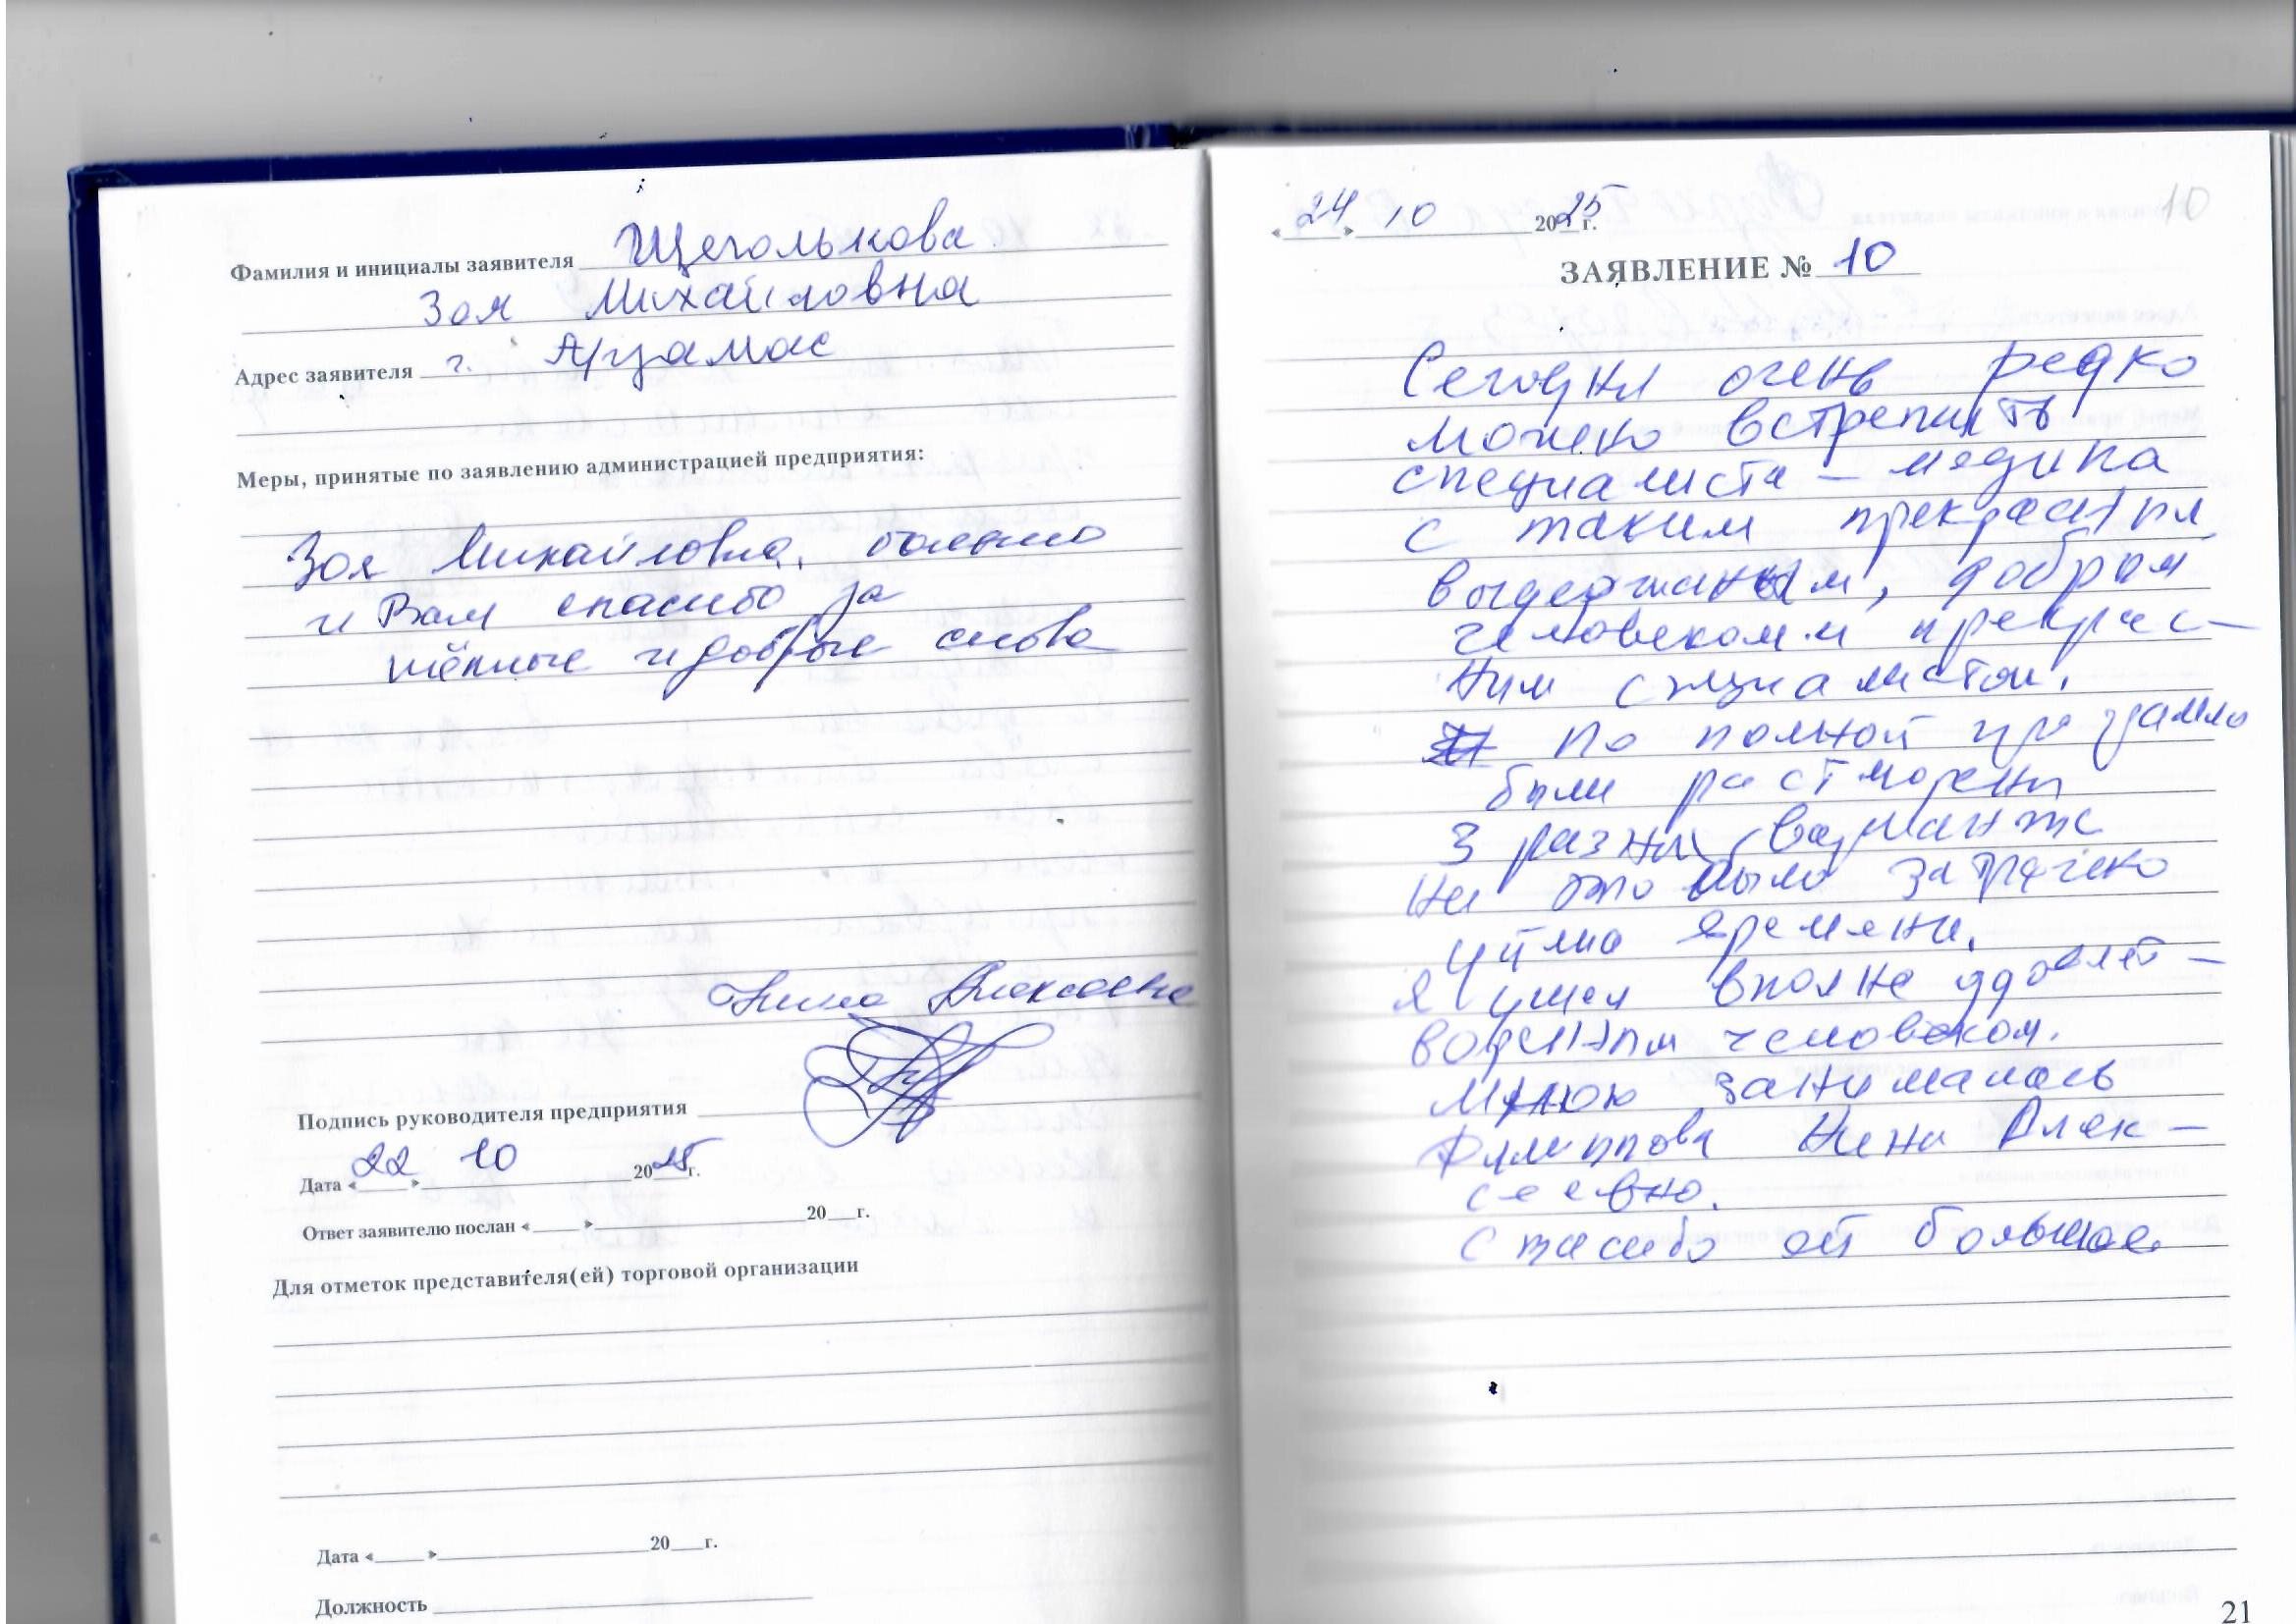 Фамилия и инициалы заявителя Щеголькова
Зоя Михайловна
Адрес заявителя г. Арзамас
Меры, принятые по заявлению администрацией предприятия:
Зоя Михайловна, большо
и Вам спасибо за
тёплые и добрые слова
Нина Алексеевна
Подпись руководителя предприятия
Дата «22» 10 2025 г.
Ответ заявителю послан «____» ____ 20__ г.
Для отметок представителя(ей) торговой организации
Дата «____» ____ 20__ г.
Должность
10
«24» 10 2025 г.
ЗАЯВЛЕНИЕ № 10
Сегодня очень редко
можно встретить
специалиста – медика
с таким прекрасным
выдержаным, добрым
человеком и прекрас-
ным специалистом.
По полной программе
были растморены
3 разных варианта
На это было затрачено
уйма времени.
Я ушел вполне удовлет-
воренным человеком.
Мною занималась
Филиппова Нина Алек-
сеевна.
Спасибо ей большое
21